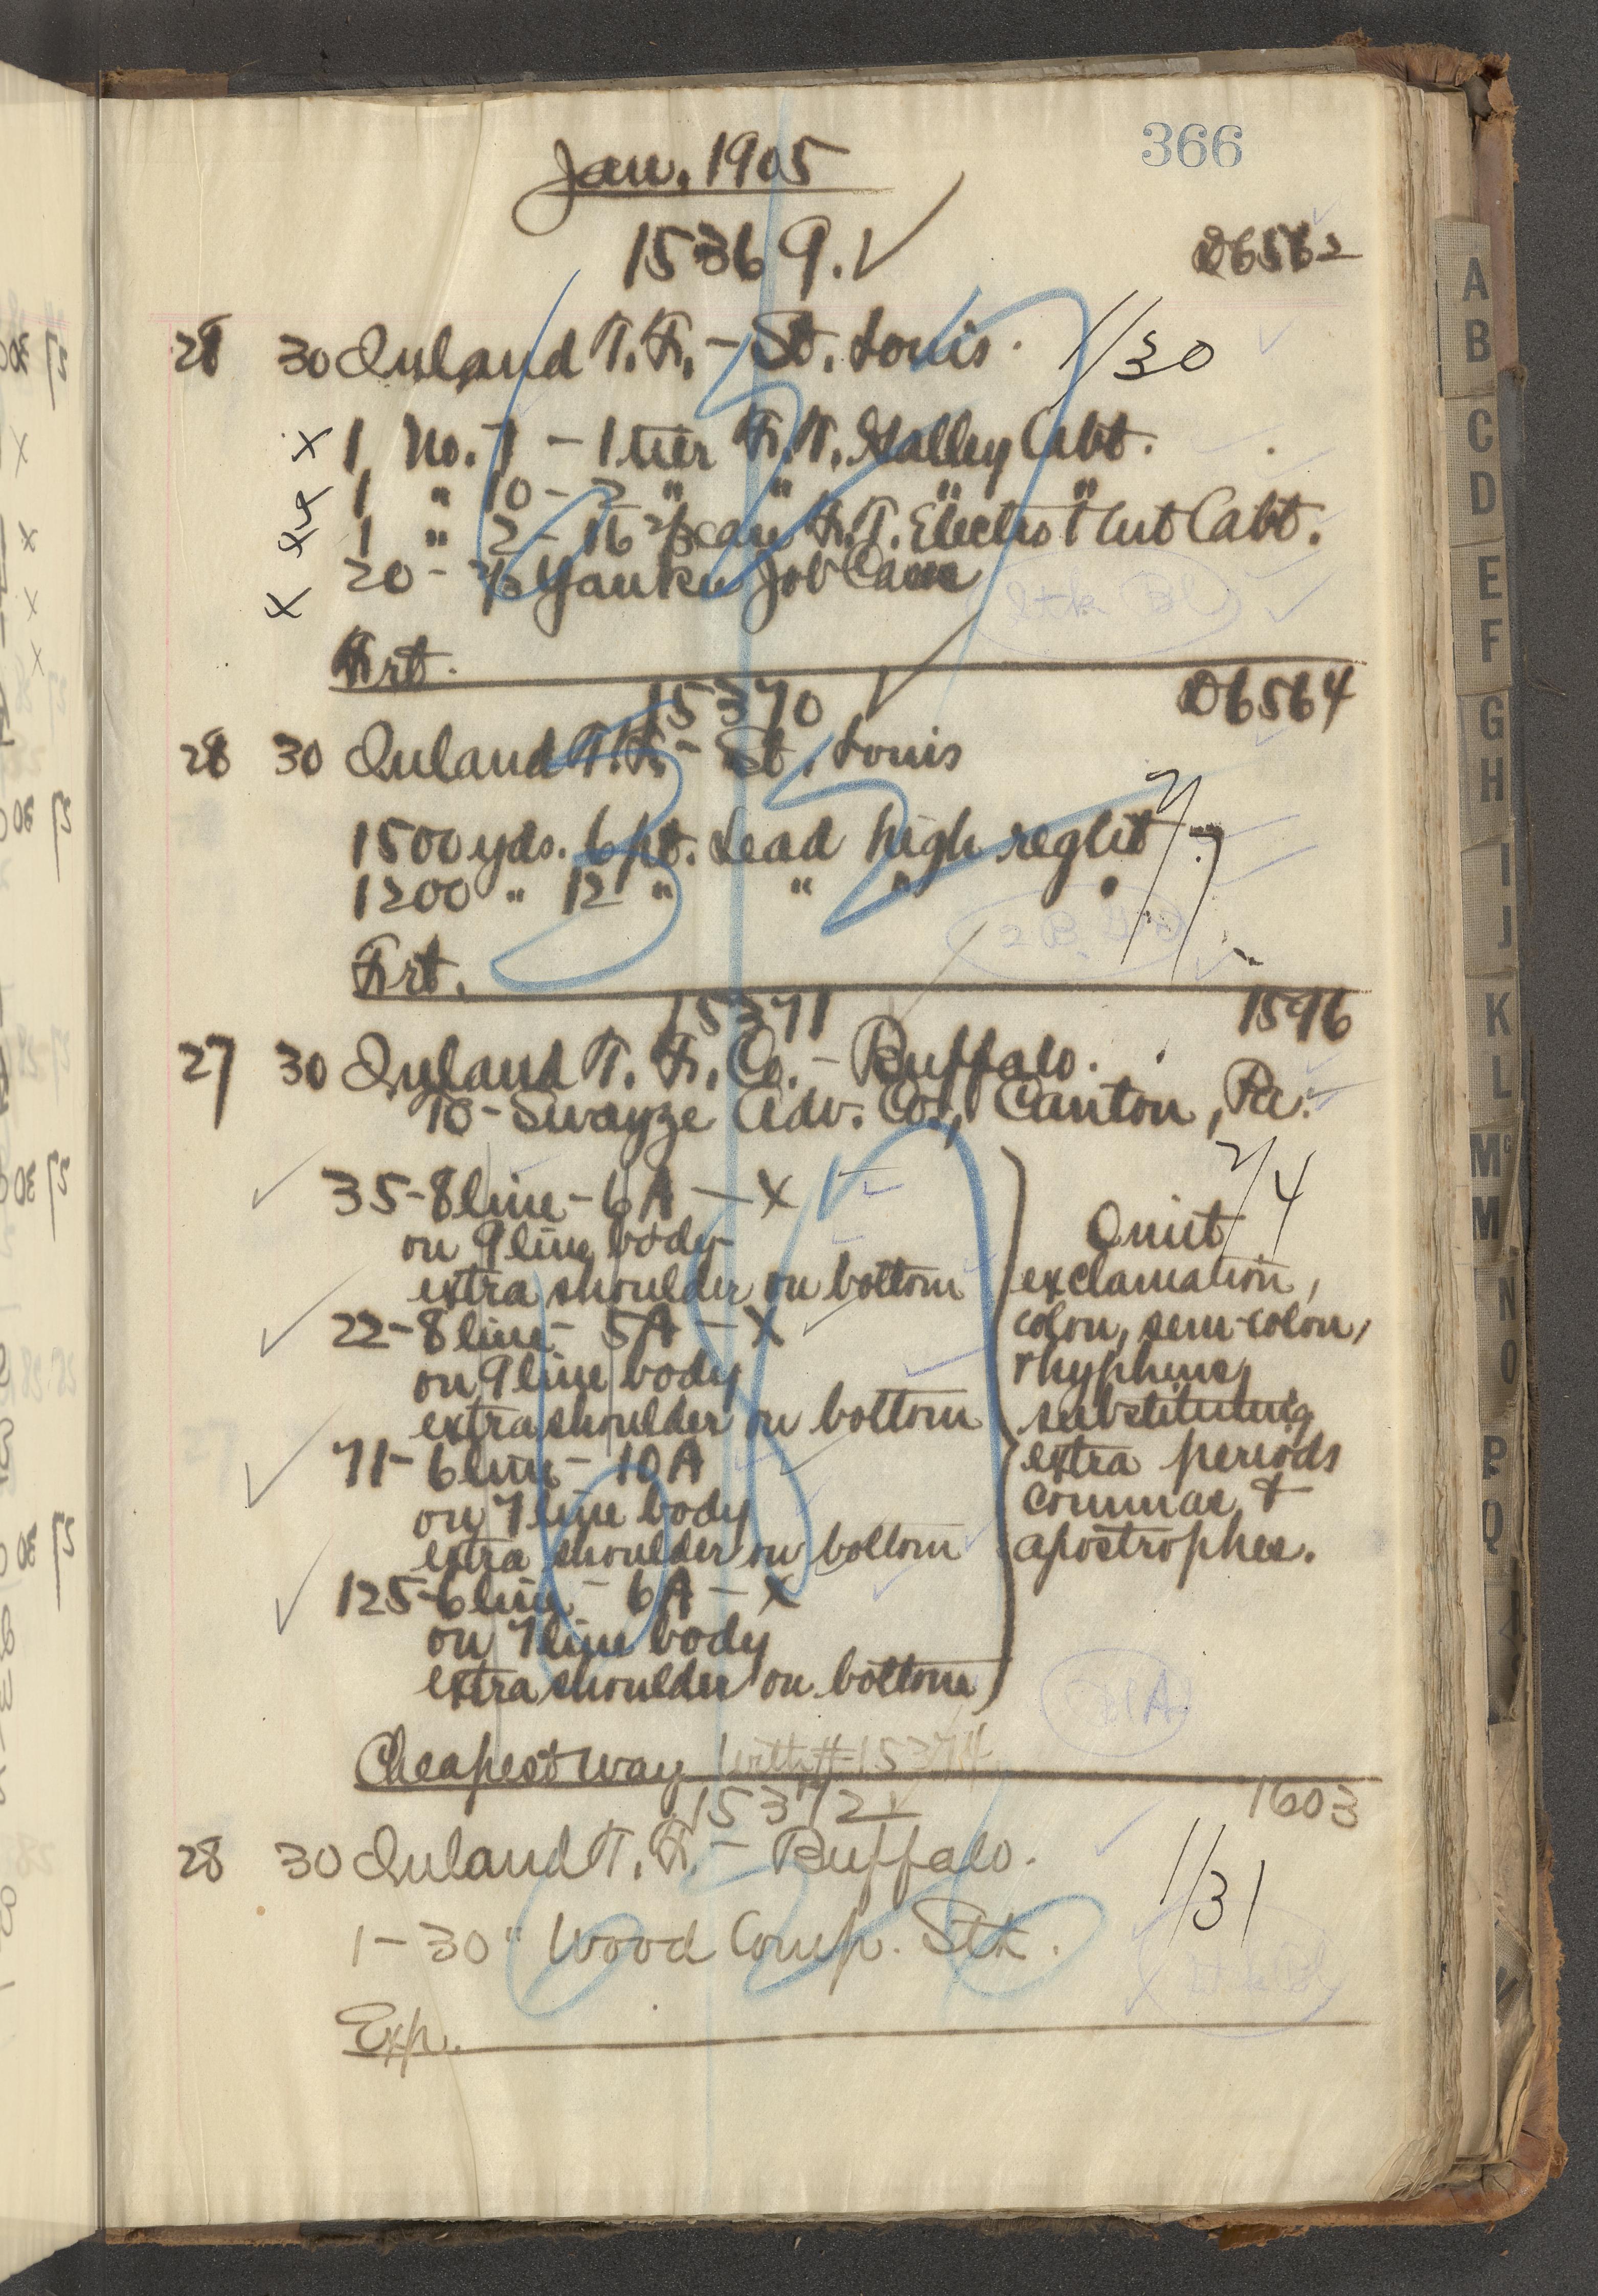 366
Jan. 1905
15369. ✓
D6562
28 30 Inland T. F. - St. Louis. 1/30
x 1 No. 7 - 1 tier F. T. Galley Cabt.
x 1 " 10 - 2 " " " "
x 1 " 2 - 16 2/3 case F. T. Electro & Cut Cabt.
x 20 - 2/3 Yankee Job Cases
Frt.
15370 ✓ D6564
28 30 Inland T. F. - St. Louis
1500 yds. 6 pt. Lead high reglet 2/7
1200 " 12 " " " "
Frt.
15371 1596
27 30 Inland T. F. Co. - Buffalo.
To - Swayze Adv. Co., Canton, Pa.
2/4
35 - 8 line - 6A - X
on 9 line body
extra shoulder on bottom
22 - 8 line - 5A - X
on 9 line body
extra shoulder on bottom
71 - 6 line - 10A
on 7 line body
extra shoulder on bottom
125 - 6 line - 6A - X
on 7 line body
extra shoulder on bottom
Omit
exclamation,
colon, semi-colon,
& hyphens,
substituting
extra periods
commas &
apostrophes.
Cheapest way with #15374
15372 1603
28 30 Inland T. F. - Buffalo. 1/31
1 - 30" Wood Comp. Stk.
Exp.
A
B
C
D
E
F
G
H
I
J
K
L
Mc
M
N
O
P
Q